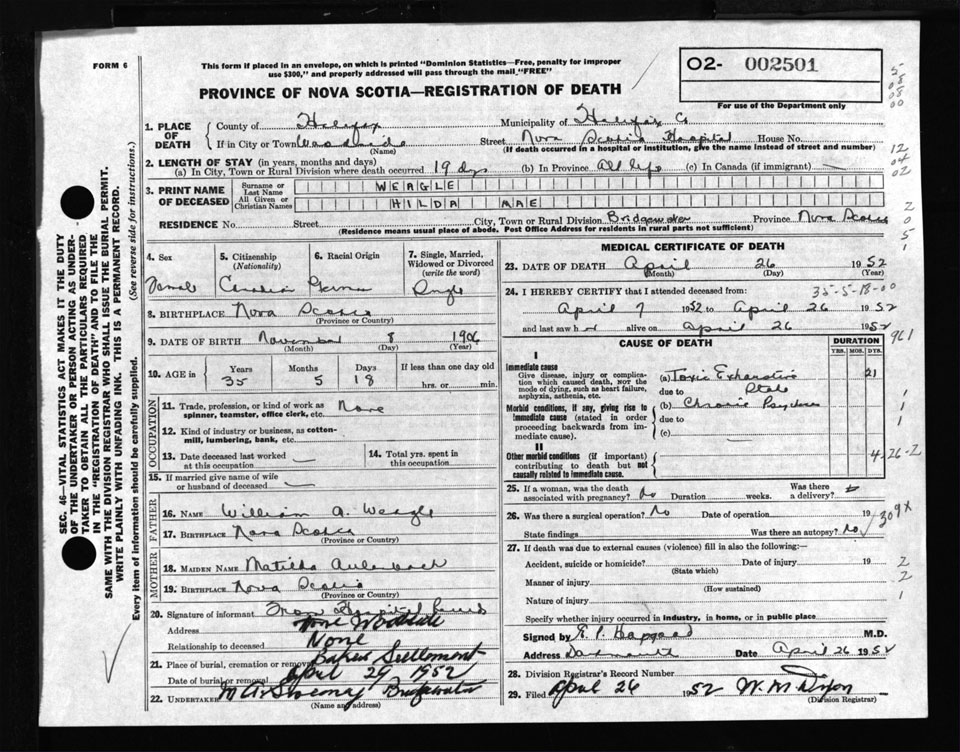 FORM 6
This form if placed in an envelope, on which is printed "Dominion Statistics—Free, penalty for improper use $300," and properly addressed will pass through the mail "FREE"
PROVINCE OF NOVA SCOTIA—REGISTRATION OF DEATH
O2- 002501
For use of the Department only
1. PLACE OF DEATH
County of Halifax Municipality of Halifax Co
If in City or Town Woodside Street Nova Scotia Hospital House No.
(Name) (If death occurred in a hospital or institution, give the name instead of street and number)
2. LENGTH OF STAY (in years, months and days)
(a) In City, Town or Rural Division where death occurred 19 dys (b) In Province All life (c) In Canada (if immigrant) —
3. PRINT NAME OF DECEASED
Surname or Last Name WEAGLE
All Given or Christian Names HILDA MAE
RESIDENCE No. Street City, Town or Rural Division Bridgewater Province Nova Scotia
(Residence means usual place of abode. Post Office Address for residents in rural parts not sufficient)
4. Sex Female
5. Citizenship (Nationality) Canadian
6. Racial Origin German
7. Single, Married, Widowed or Divorced (write the word) Single
8. BIRTHPLACE Nova Scotia
(Province or Country)
9. DATE OF BIRTH November 8 1906
(Month) (Day) (Year)
10. AGE in Years Months Days If less than one day old
35 5 18 hrs. or min.
OCCUPATION
11. Trade, profession, or kind of work as spinner, teamster, office clerk, etc. None
12. Kind of industry or business, as cotton-mill, lumbering, bank, etc.
13. Date deceased last worked at this occupation —
14. Total yrs. spent in this occupation
15. If married give name of wife or husband of deceased —
FATHER
16. NAME William A. Weagle
17. BIRTHPLACE Nova Scotia
(Province or Country)
MOTHER
18. MAIDEN NAME Matilda Aulenback
19. BIRTHPLACE Nova Scotia
(Province or Country)
20. Signature of informant From Hospital
Address Woodside
Relationship to deceased None
21. Place of burial, cremation or removal Baker Settlement
Date of burial or removal April 29, 1952
22. UNDERTAKER Bridgewater
(Name and address)
MEDICAL CERTIFICATE OF DEATH
23. DATE OF DEATH April 26 1952
(Month) (Day) (Year)
24. I HEREBY CERTIFY that I attended deceased from: 35-5-18-00
April 7 1952 to April 26 1952
and last saw her alive on April 26 1952
CAUSE OF DEATH
DURATION
YRS. MOS. DYS.
I
Immediate cause
Give disease, injury or complication which caused death, nor the mode of dying, such as heart failure, asphyxia, asthenia, etc.
(a) Toxic Exhaustive State 21
due to
Morbid conditions, if any, giving rise to immediate cause (stated in order proceeding backwards from immediate cause).
(b) Chronic Psychosis
due to
(c) —
II
Other morbid conditions (if important) contributing to death but not causally related to immediate cause.
25. If a woman, was the death associated with pregnancy? No Duration weeks. Was there a delivery?
26. Was there a surgical operation? No Date of operation 19
State findings Was there an autopsy? No
27. If death was due to external causes (violence) fill in also the following:—
Accident, suicide or homicide? Date of injury 19
(State which)
Manner of injury
(How sustained)
Nature of injury
Specify whether injury occurred in industry, in home, or in public place
Signed by E. P. Hapgood M.D.
Address Dartmouth Date April 26 1952
28. Division Registrar's Record Number
29. Filed April 26 1952 W. M. Dixon
(Division Registrar)
SEC. 46—VITAL STATISTICS ACT MAKES IT THE DUTY OF THE UNDERTAKER OR PERSON ACTING AS UNDERTAKER TO OBTAIN ALL THE PARTICULARS REQUIRED IN THE "REGISTRATION OF DEATH" AND TO FILE THE SAME WITH THE DIVISION REGISTRAR WHO SHALL ISSUE THE BURIAL PERMIT.
WRITE PLAINLY WITH UNFADING INK. THIS IS A PERMANENT RECORD.
Every item of information should be carefully supplied. (See reverse side for instructions.)
5
08
08
00
12
04
02
2
0
5
1
961
1
1
1
4 26-2
309x
2
2
1